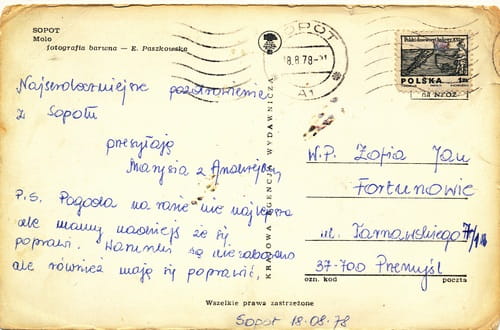 SOPOT
Molo
fotografia barwna — E. Paszkowska
SOPOT
18.8.78
A1
POLSKA
na NFOZ
Najserdeczniejsze pozdrowienia
z Sopotu
przesyłają
Marysia z Andrzejem
P.S. Pogoda na razie nie najlepsza
ale mamy nadzieję że się
poprawi. Warunki są
ale również mają się poprawić.
KRAJOWA AGENCJA WYDAWNICZA
W.P. Zofia Jan
Fortunowie
ul. Tarnawskiego
37-700 Przemyśl
ozn. kod poczta
Wszelkie prawa zastrzeżone
Sopot 18.08.78